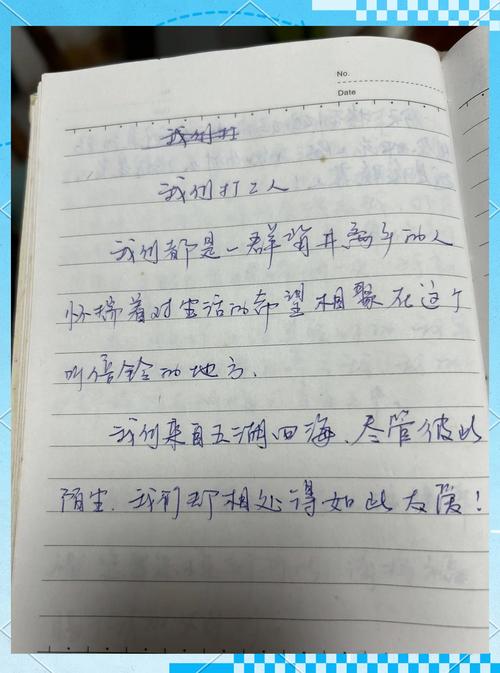 No.
Date
我们打
我们打工人
我们都是一群背井离乡的人
怀揣着对生活的希望相聚在这个
叫倍铨的地方.
我们来自五湖四海、尽管彼此
陌生.我们却相处得如此友爱!